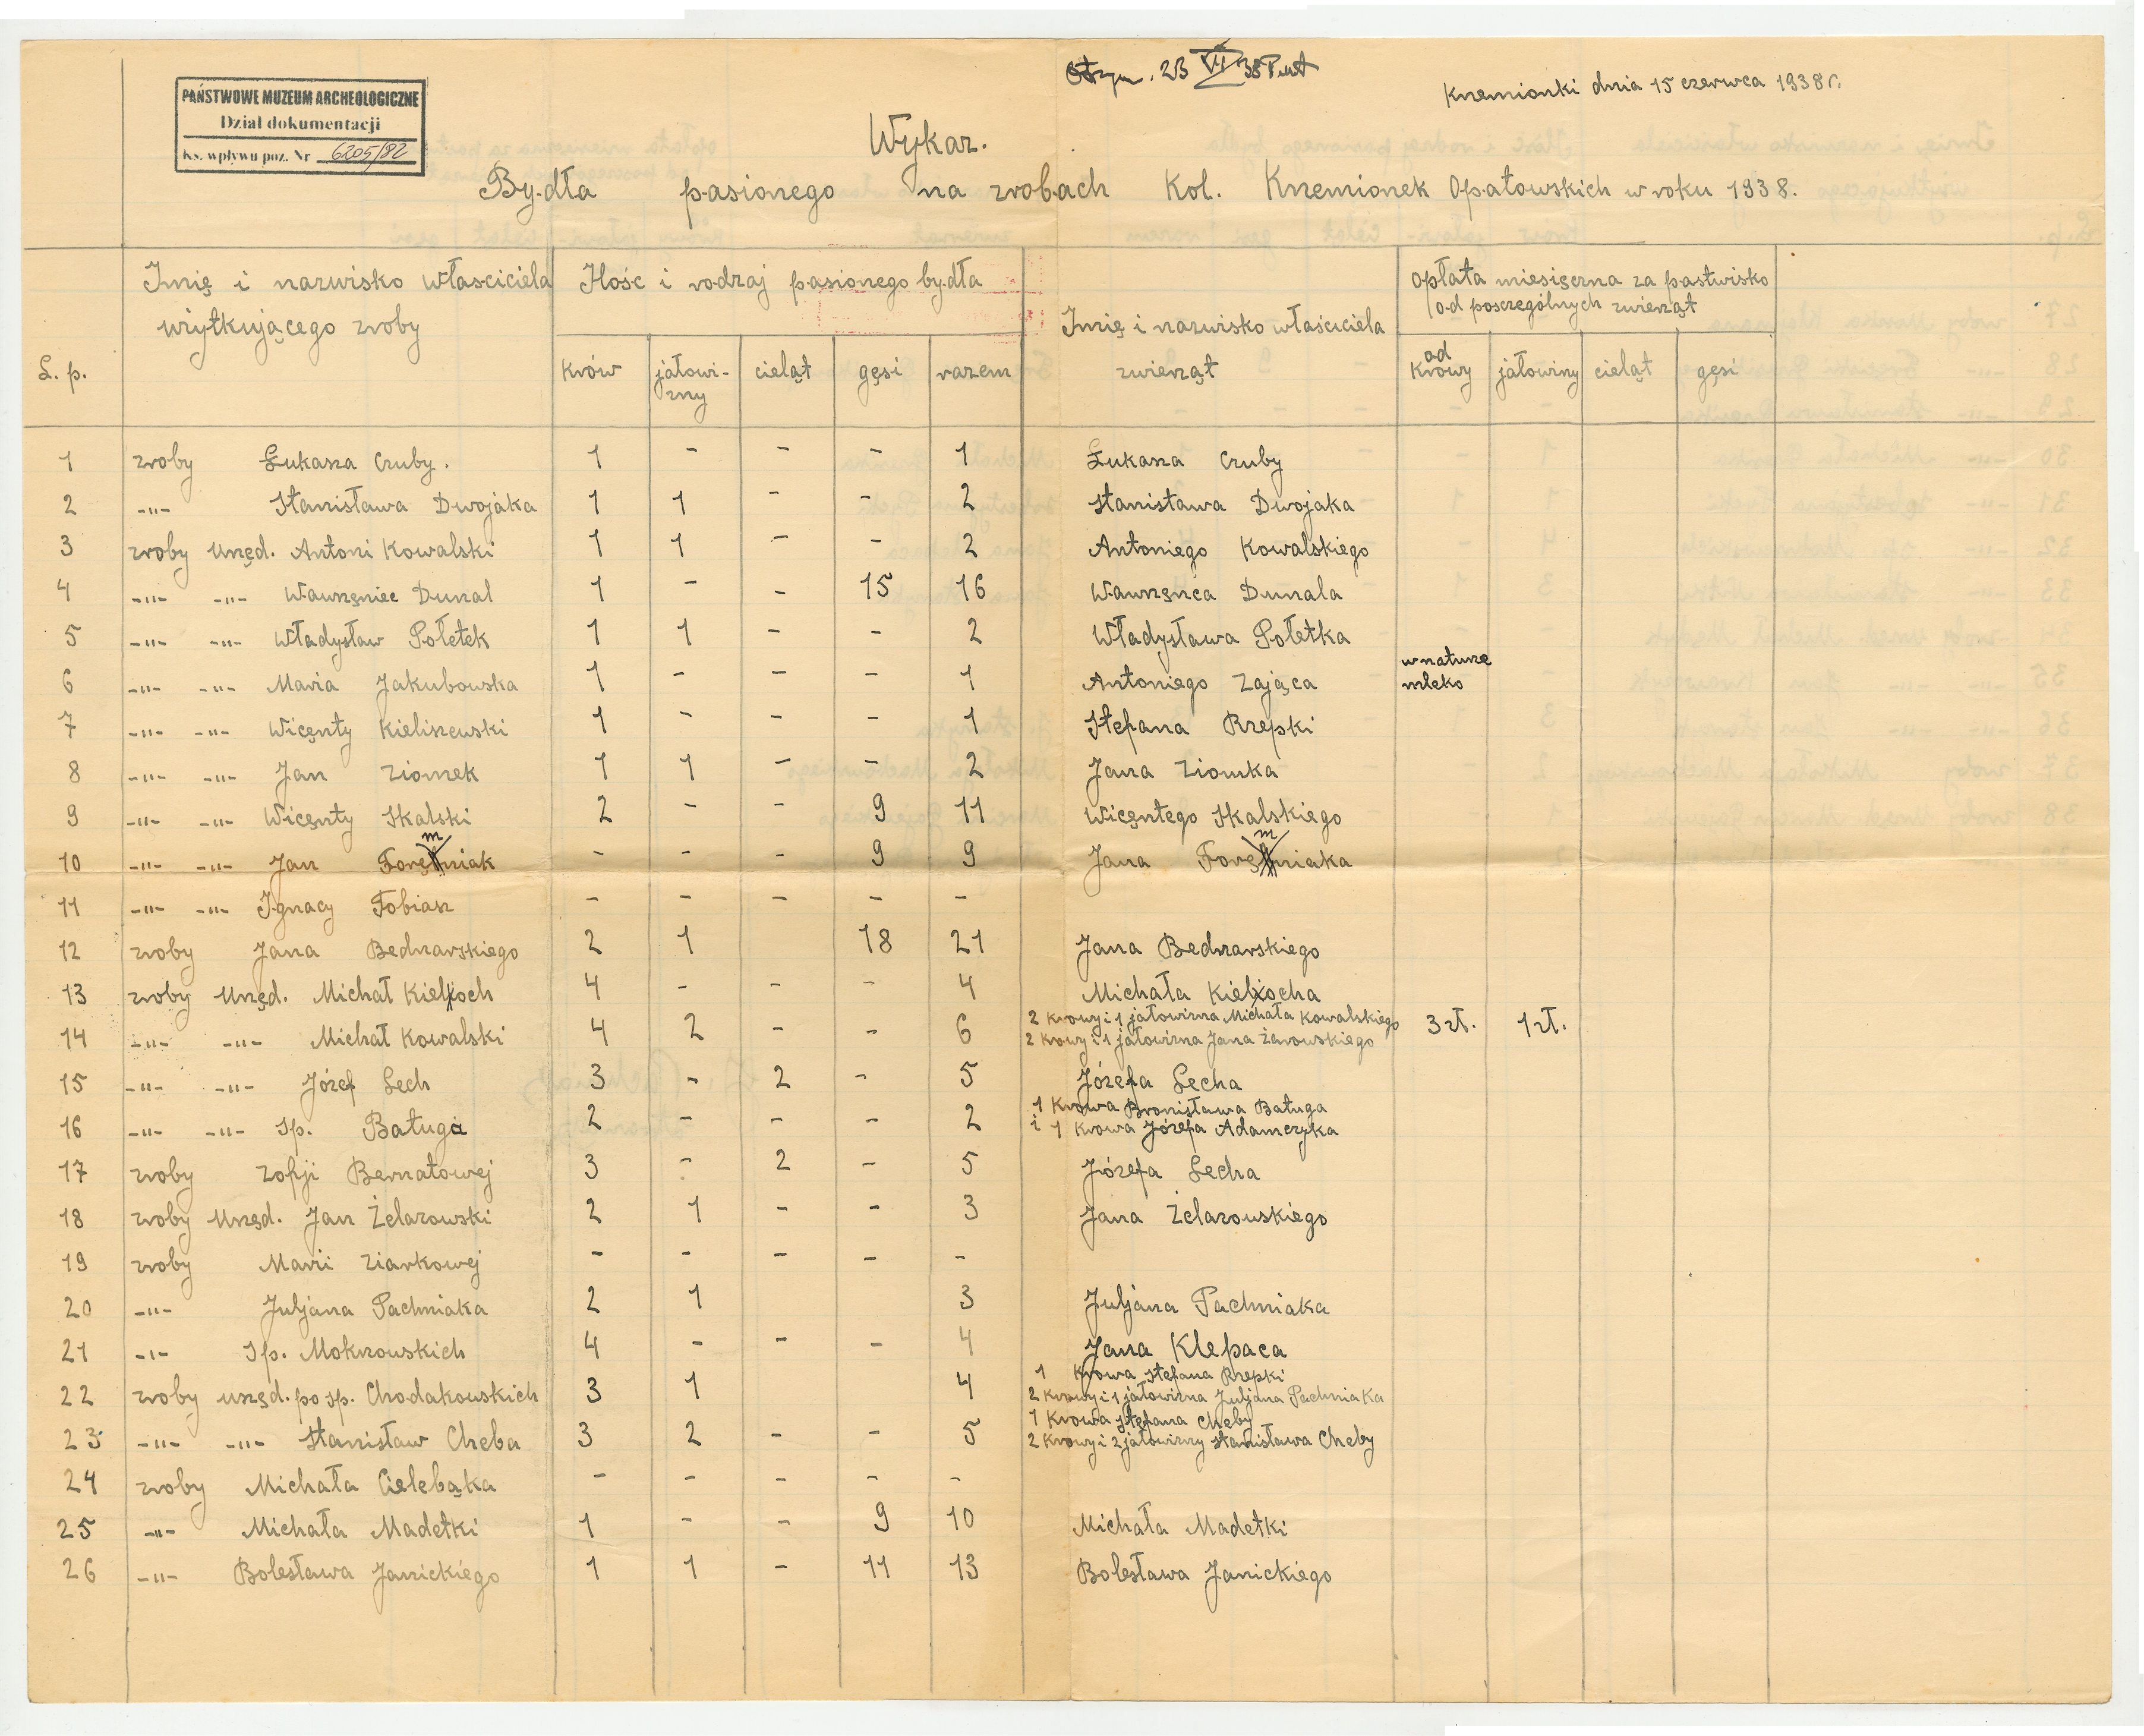 Otrzym. 23 VI 38
Krzemionki dnia 15 czerwca 1938 r.
PAŃSTWOWE MUZEUM ARCHEOLOGICZNE
Dział dokumentacji
Ks. wpływu poz. Nr 6205/82
Wykaz.
Bydła pasionego na zrobach Kol. Krzemionek Opatowskich w roku 1938.
L. p. | Imię i nazwisko właściciela wżytkującego zroby | Ilośc i rodzaj pasionego bydła | Imię i nazwisko właściciela zwierząt | Opłata miesięczna za pastwisko od poszczególnych zwierząt
krów | jałowi-zny | cieląt | gęsi | razem | od krowy | jałowizny | cieląt | gęsi
1 zroby Łukasza Czuby. 1 - - - 1 Łukasza Czuby
2 -"- Stanisława Dwojaka 1 1 - - 2 Stanisława Dwojaka
3 zroby Urzęd. Antoni Kowalski 1 1 - - 2 Antoniego Kowalskiego
4 -"- -"- Wawrzęniec Dunal 1 - - 15 16 Wawrzęńca Dunala
5 -"- -"- Władysław Połetek 1 1 - - 2 Władysława Połetka
6 -"- -"- Maria Jakubowska 1 - - - 1 Antoniego Zająca w naturze mleko
7 -"- -"- Wicęnty Kieliszewski 1 - - - 1 Stefana Rzepki
8 -"- -"- Jan Ziomek 1 1 - - 2 Jana Ziomka
9 -"- -"- Wicęnty Skalski 2 - - 9 11 Wicęntego Skalskiego
10 -"- -"- Jan Foręmniak - - - 9 9 Jana Foręmniaka
11 -"- -"- Ignacy Tobiasz - - - - -
12 zroby Jana Bednarskiego 2 1 18 21 Jana Bednarskiego
13 zroby Urzęd. Michał Kieloch 4 - - - 4 Michała Kielocha
14 -"- -"- Michał Kowalski 4 2 - - 6 2 krowy i 1 jałowizna Michała Kowalskiego 3 zł. 1 zł.
2 krowy i 1 jałowizna Jana Żarowskiego
15 -"- -"- Józef Lech 3 - 2 - 5 Józefa Lecha
16 -"- -"- Sp. Batuga 2 - - - 2 1 krowa Bronisława Batuga
i 1 krowa Józefa Adamczyka
17 zroby Zofji Bernatowej 3 - 2 - 5 Józefa Lecha
18 zroby Urzęd. Jan Żelazowski 2 1 - - 3 Jana Żelazowskiego
19 zroby Marii Ziarkowej - - - - -
20 -"- Juljana Pachniaka 2 1 3 Juljana Pachniaka
21 -"- Sp. Mokrzowskich 4 - - - 4 Jana Klepaca
22 zroby urzęd. po sp. Chodakowskich 3 1 4 1 krowa Stefana Rzepki
2 krowy i 1 jałowizna Juljana Pachniaka
23 -"- -"- Stanisław Cheba 3 2 - - 5 1 krowa Stefana Cheby
2 krowy i 2 jałowizny Stanisława Cheby
24 zroby Michała Cielebąka - - - - -
25 -"- Michała Madetki 1 - - 9 10 Michała Madetki
26 -"- Bolesława Janickiego 1 1 - 11 13 Bolesława Janickiego